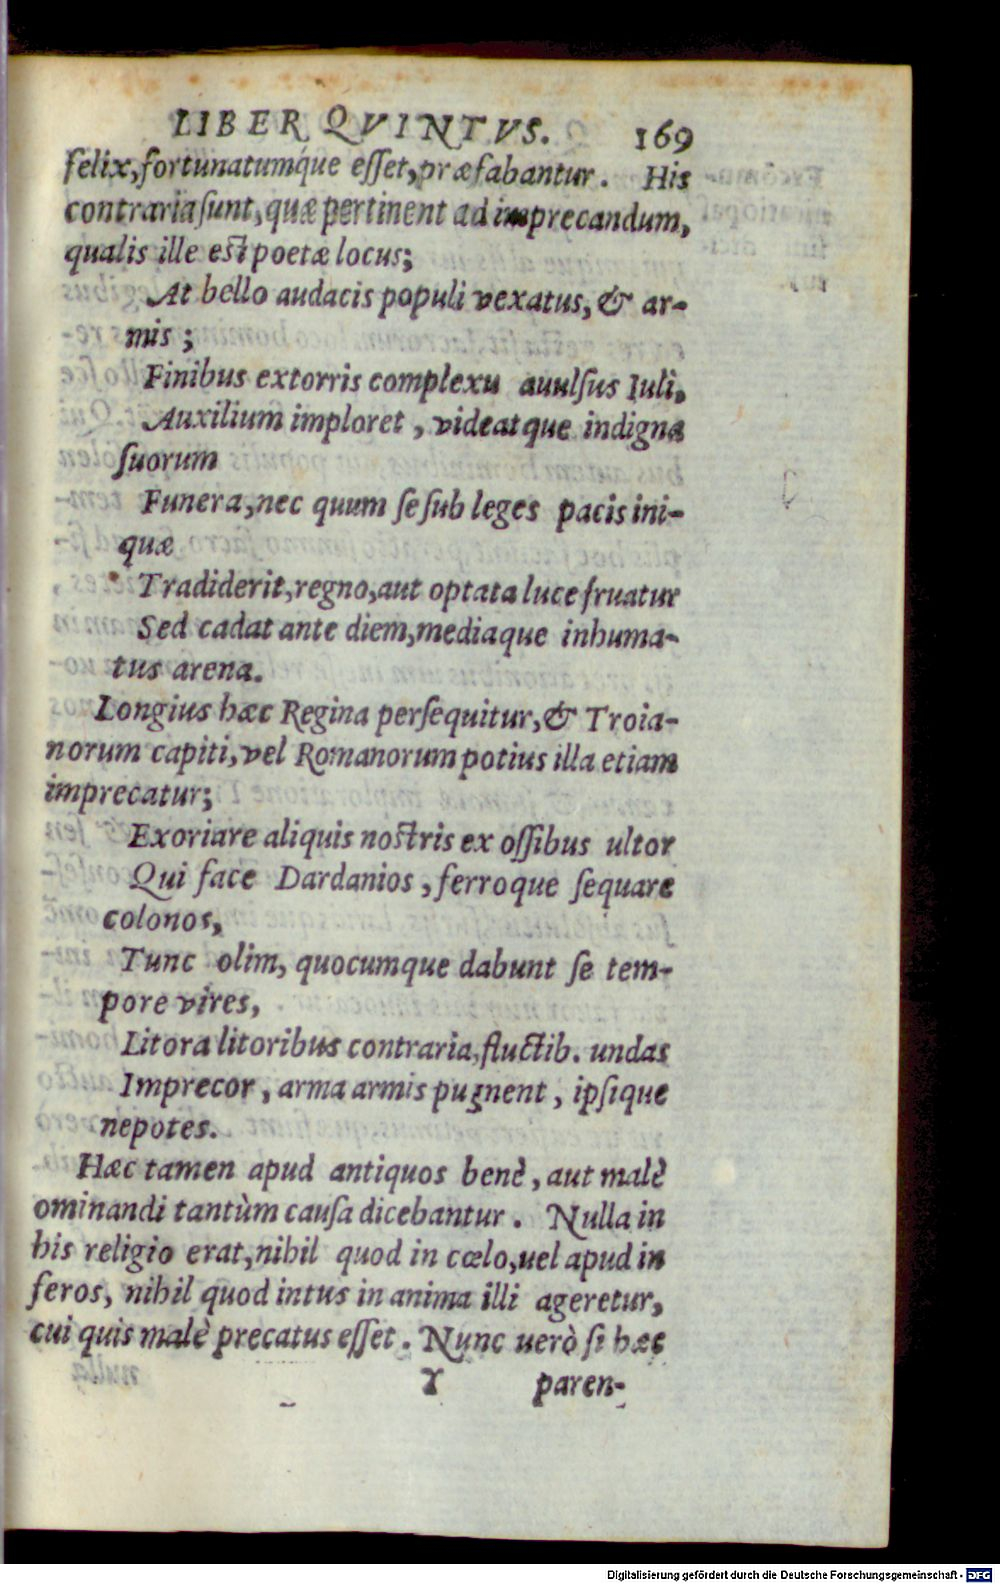 LIBER QVINTVS. 169
felix, fortunatumq́ue eſſet, præfabantur. His
contraria ſunt, quæ pertinent ad imprecandum,
qualis ille eſt poetæ locus;
At bello audacis populi vexatus, & ar-
mis;
Finibus extorris complexu auulſus Iuli,
Auxilium imploret, videatque indigna
ſuorum
Funera, nec quum ſe ſub leges pacis ini-
quæ
Tradiderit, regno, aut optata luce fruatur
Sed cadat ante diem, mediaque inhuma-
tus arena.
Longius hæc Regina perſequitur, & Troia-
norum capiti, vel Romanorum potius illa etiam
imprecatur;
Exoriare aliquis noſtris ex oſſibus ultor
Qui face Dardanios, ferroque ſequare
colonos,
Tunc olim, quocumque dabunt ſe tem-
pore vires,
Litora litoribus contraria, fluctib. undas
Imprecor, arma armis pugnent, ipſique
nepotes.
Hæc tamen apud antiquos benè, aut malè
ominandi tantùm cauſa dicebantur. Nulla in
his religio erat, nihil quod in cœlo, uel apud in
feros, nihil quod intus in anima illi ageretur,
cui quis malè precatus eſſet. Nunc uerò ſi hæc
Y paren-
Digitalisierung gefördert durch die Deutsche Forschungsgemeinschaft - DFG